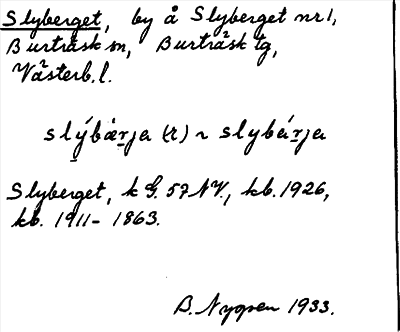 Slyberget, by å Slyberget nr 1,
Burträsk sn, Burträsk tg,
Västerb. l.
slýbærja (r) ~ slybǽrja
Slyberget, k G. 57 NV., kb. 1926,
kb. 1911-1863.
B. Nygren 1933.